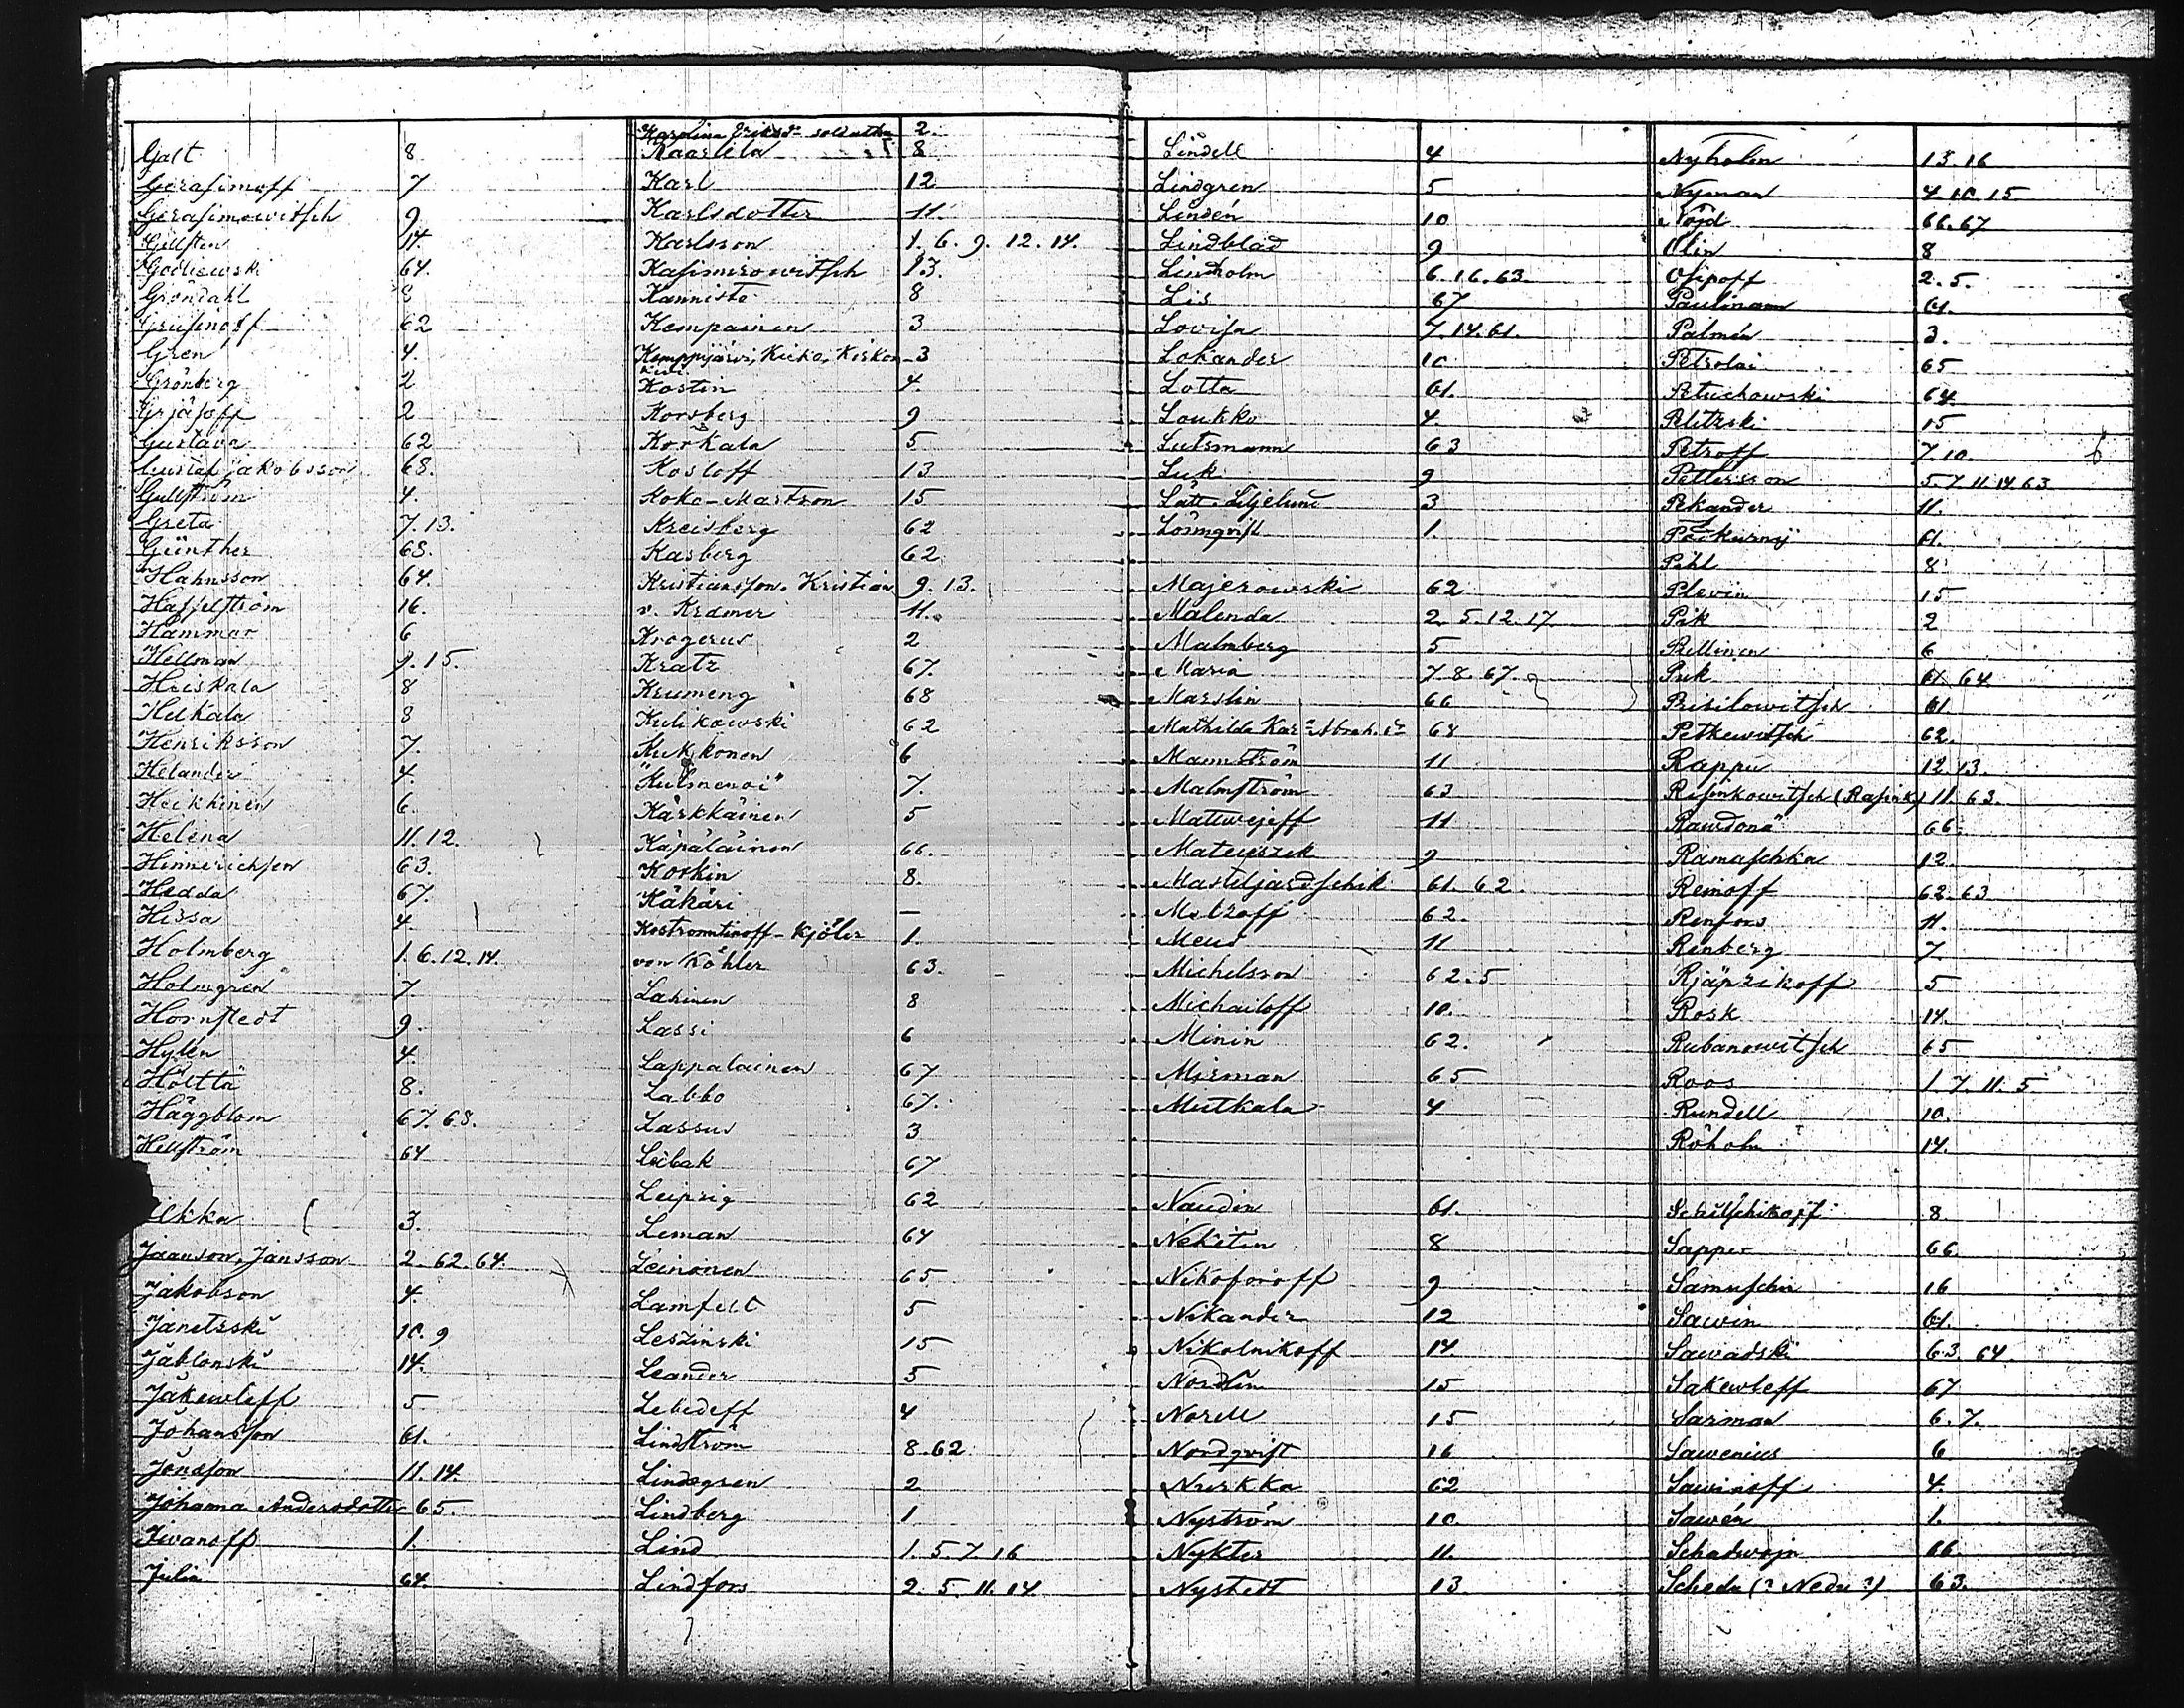 Galt 8
Gerasimoff 7
Gerasimowitsch 9
Gillsten 14.
Godlewski 64.
Gröndahl 8
Grusinoff 62
Gren 4.
Grönberg 2
Grjäsoff 2
Gustava 62
Gustaf Jakobsson 68.
Gullström 4.
Greta 7. 13.
Günther 68.
Hahnsson 64.
Hasselström 16.
Hammar 6
Hellman 9. 15.
Heiskala 8
Helkala 8
Henriksson 7.
Helander 4.
Heikkinen 6.
Helena 11. 12.
Hinnerichsen 63.
Hedda 67.
Hirsa 4.
Holmberg 1. 6. 12. 14.
Holmgren 7.
Hornstedt 9.
Hylen 4.
Hölttä 8.
Häggblom 67. 68.
Hellström 64
Ilkka 3.
Jaanson, Jansson 2. 62. 64.
Jakobson 4.
Janetzski 10. 9
Jablonski 14.
Jakewleff 5
Johansson 61.
Jonasson 11. 14.
Johanna Andersdotter 65.
Iwanoff 1.
Julia 64.
Karolina Eriksd- 2.
Kaarlela 8
Karl 12
Karlsdotter 11.
Karlsson 1. 6. 9. 12. 14.
Kasimirowitsch 13.
Kannisto 8
Kempainen 3
Kemppijärvi, 3
Kostin 4.
Korsberg 9
Korkala 5
Kosloff 13
Koko-Martson 15
Kreisberg 62
Kasberg 62
Kristiansson, Kristian 9. 13.
v. Kramer 11.
Krogerus 2
Kratz 67.
Krumeng 68
Kulikowski 62
Kukkonen 6
"Kulmenoi" 7.
Kärkkäinen 5
Käpäläinen 66.
Korkin 8.
Käkäri —
Kostromtinoff-Kjöler 1.
von Köhler 63.
Lahinen 8
Lassi 6
Lappalainen 67
Labbo 67.
Lassus 3
Leibak 67
Leipzig 62
Leman 64
Leinonen 65
Lamfelt 5
Leszinski 15
Leander 5
Lebedeff 4
Lindström 8. 62
Lindegren 2
Lindberg 1
Lind 1. 5. 7. 16
Lindfors 2. 5. 11. 14.
Lindell 4
Lindgren 5
Lindén 10
Lindblad 9
Lindholm 6. 16. 63.
Lis 67
Lovisa 7. 14. 61.
Lokander 10
Lotta 61.
Loukko 4.
Lutsmann 63
Luk 9
Lätt-Liljelund 3
Lömqvist 1.
Majerowski 62
Malenda 2. 5. 12. 17.
Malmberg 5
Maria 7. 8. 67.
Marslin 66
Mathilda 68
Mannström 11
Malmström 63
Matwejeff 11
Mateuszek 9
Masteljardschik 61. 62.
Melzoff 62.
Meus 11
Michelsson 62. 5
Michailoff 10.
Minin 62.
Mirman 65
Mutkala 4
Naudin 61.
Nekitin 8
Nikoforoff 9
Nikander 12
Nikolnikoff 14.
Nordlin 15
Norell 15
Nordqvist 16
Nurkka 62
Nyström 10.
Nykter 11.
Nystedt 13
Nyholm 13. 16
Nyman 4. 10. 15.
Nöjd 66. 67
Olin 8
Osipoff 2. 5.
Paulinam 61.
Palmén 3.
Petrolai 65
Petuchowski 64.
Peletzski 15
Petroff 7. 10.
Pettersson 5. 7. 11. 14. 63
Pekander 11.
61.
Pihl 8
Plevin 15
Pik 2
Pellinen 6
Puk 61. 64
Prisilowitsch 61.
Petkewitsch 62.
Rappu 12. 13.
Risinkowitsch (Rasink) 11. 63.
Rawdona 66.
Ramaschka 12
Remoff 62. 63
Renfors 11.
Renberg 7.
Rjäpzikoff 5
Rosk 14.
Rubanowitsch 65
Roos 1. 7. 11. 5
Rundell 10.
Röholm 14.
Schilschikoff 8.
Sapper 66.
Samuschin 16
Sawin 61.
Sawadski 63. 64
Sakewleff 67
Sarman 6. 7.
Sawenius 6
Sawinoff 4.
Sawén 1.
Schadwojn 66.
Scheda (? Nedu ?) 63.